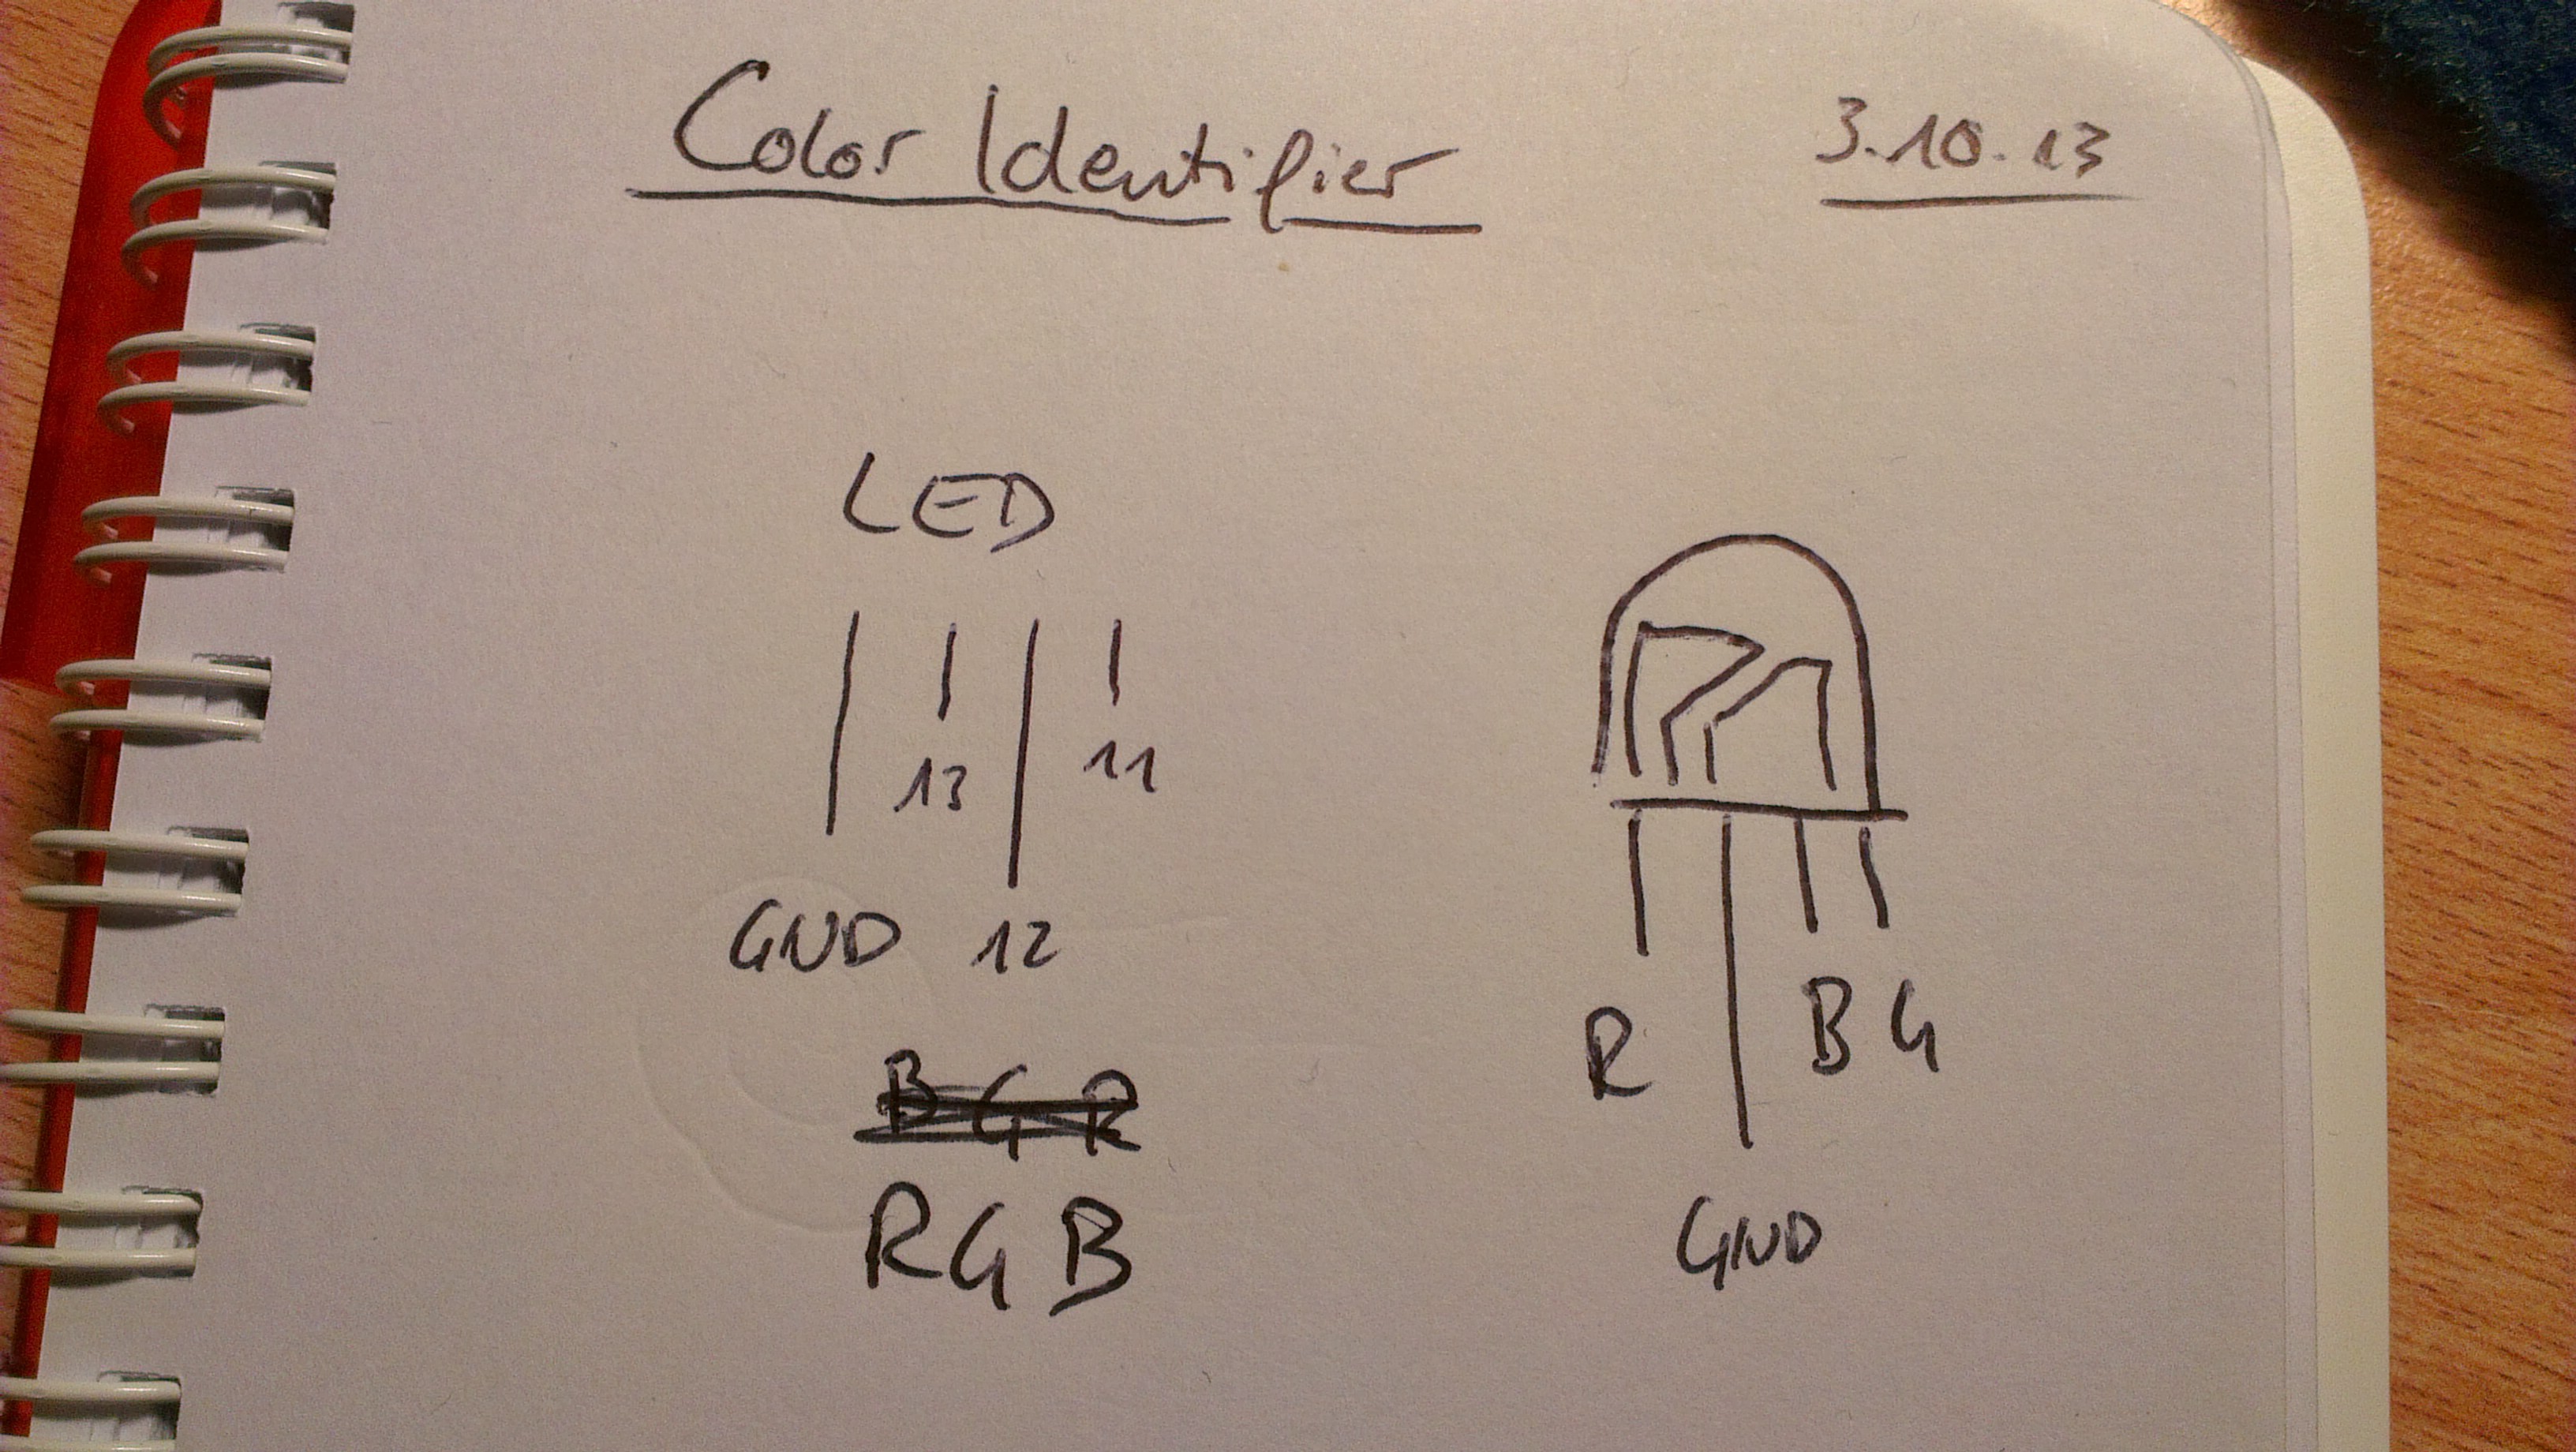 Color Identifier 3.10.13
LED
13 11
GND 12
B G R
R G B
R B G
GND